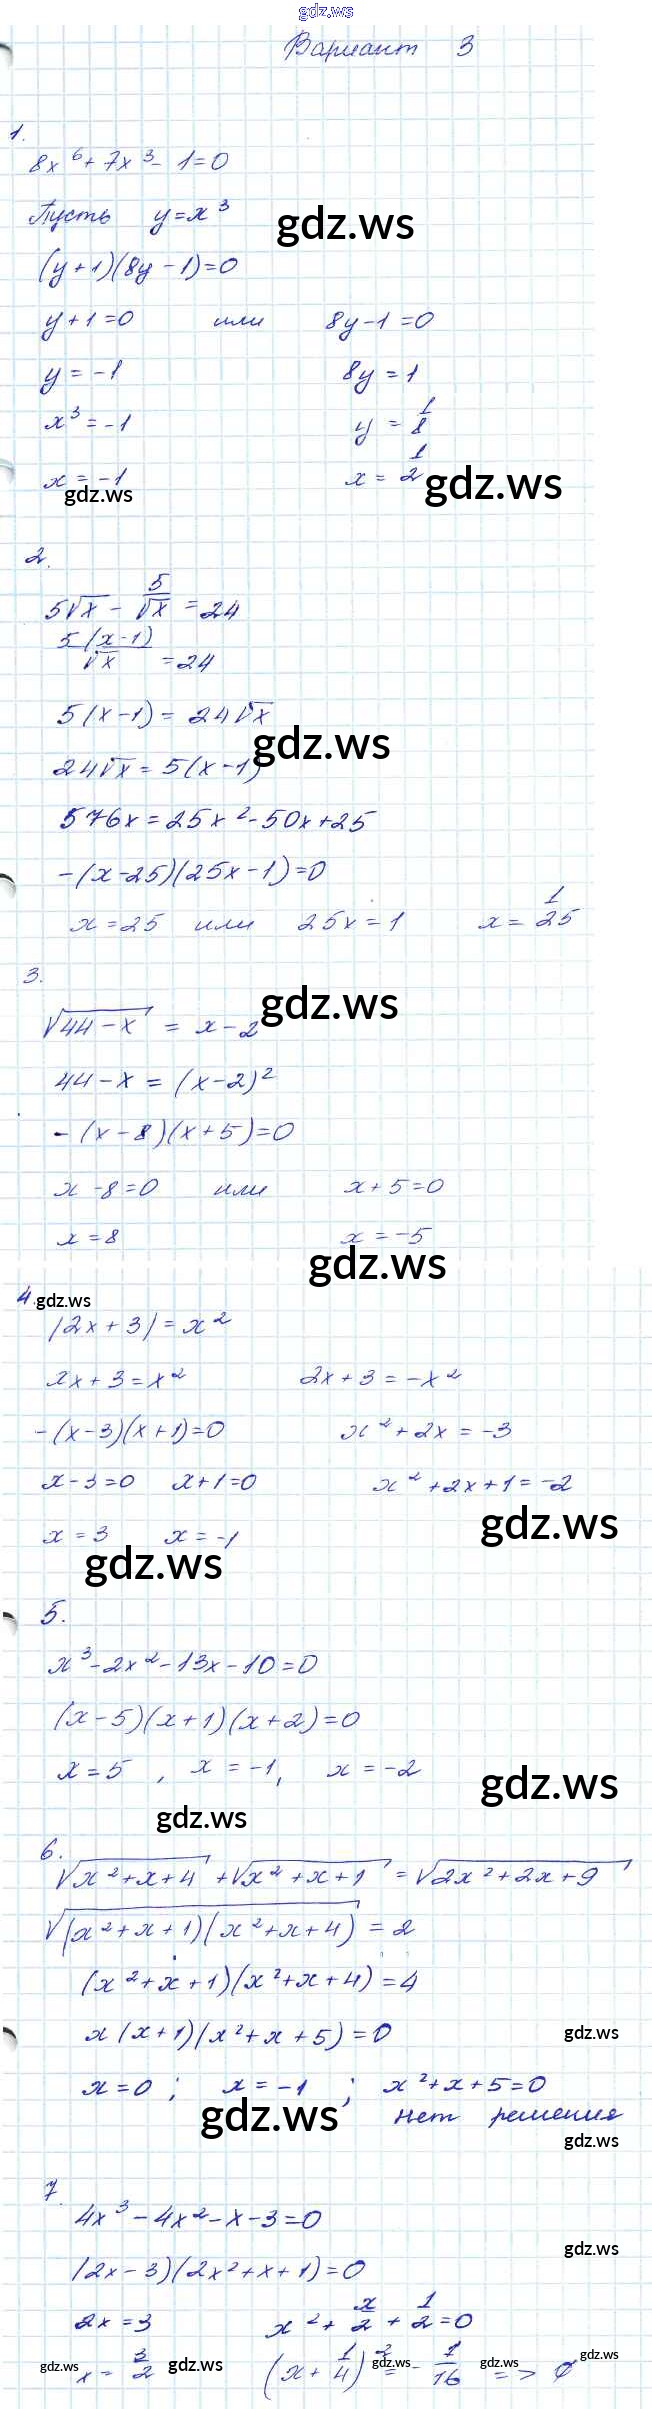 gdz.ws
Вариант 3
1.
8x⁶ + 7x³ - 1 = 0
Пусть y = x³
gdz.ws
(y + 1)(8y - 1) = 0
y + 1 = 0 или 8y - 1 = 0
y = -1 8y = 1
x³ = -1 y = 1/8
x = -1 x = 1/2
gdz.ws gdz.ws
2.
5√x - 5/√x = 24
5(x - 1)/√x = 24
5(x - 1) = 24√x
gdz.ws
24√x = 5(x - 1)
576x = 25x² - 50x + 25
-(x - 25)(25x - 1) = 0
x = 25 или 25x = 1 x = 1/25
3.
gdz.ws
√44 - x = x - 2
44 - x = (x - 2)²
-(x - 8)(x + 5) = 0
x - 8 = 0 или x + 5 = 0
x = 8 x = -5
gdz.ws
4. gdz.ws
|2x + 3| = x²
xx + 3 = x² 2x + 3 = -x²
-(x - 3)(x + 1) = 0 x² + 2x = -3
x - 3 = 0 x + 1 = 0 x² + 2x + 1 = -2
gdz.ws
x = 3 x = -1
gdz.ws
5.
x³ - 2x² - 13x - 10 = 0
(x - 5)(x + 1)(x + 2) = 0
x = 5, x = -1, x = -2
gdz.ws
gdz.ws
6.
√x² + x + 4 + √x² + x + 1 = √2x² + 2x + 9
√(x² + x + 1)(x² + x + 4) = 2
(x² + x + 1)(x² + x + 4) = 4
x(x + 1)(x² + x + 5) = 0
gdz.ws
x = 0; x = -1; x² + x + 5 = 0
gdz.ws
нет решения
gdz.ws
7.
4x³ - 4x² - x - 3 = 0
gdz.ws
(2x - 3)(2x² + x + 1) = 0
2x = 3 x² + x/2 + 1/2 = 0
x = 3/2 (x + 1/4)² = -1/16 => ∅
gdz.ws gdz.ws gdz.ws gdz.ws gdz.ws